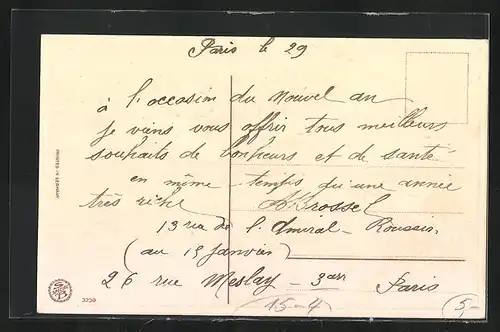 Paris le 29
à l'occasion du Nouvel an
je viens vous offrir tous meilleurs
souhaits de bonheurs et de santé
en même temps qu'une année
très riche
A Krossel
13 rue de l'Amiral-Roussin.
(au 15 janvier)
26 rue Meslay - 3 arr Paris
15-4
5-
PRINTED IN GERMANY
3739